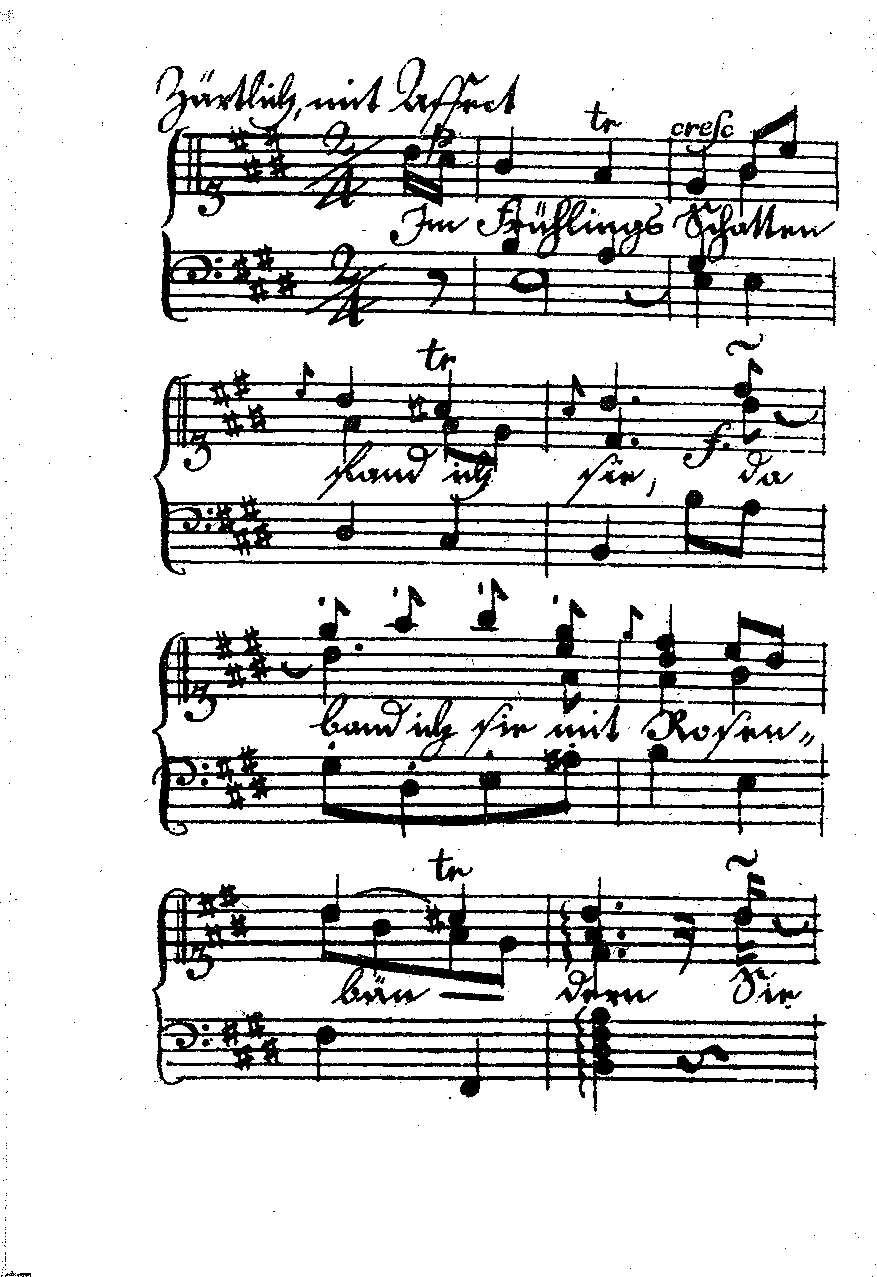 Zärtlich, mit Affect
tr
cresc
Im Frühlings Schatten
tr
fand ich sie, f. da
band ich sie mit Rosen=
tr
bän — dern Sie